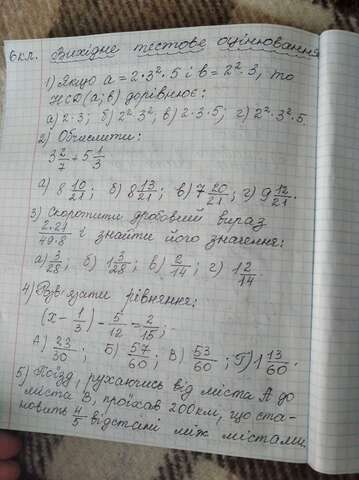 6 кл. Вихідне тестове оцінювання
1) Якщо a = 2·3²·5 і b = 2²·3, то
НСД (a; b) дорівнює:
а) 2·3; б) 2²·3²; в) 2·3·5; г) 2²·3²·5
2) Обчислити:
3 2/7 + 5 1/3
а) 8 10/21; б) 8 13/21; в) 7 20/21; г) 9 12/21.
3) Скоротити дробовий вираз
2·21/49·8 і знайти його значення:
а) 3/28; б) 1 3/28; в) 2/14; г) 12/14.
4) Розв'язати рівняння:
(x - 1/3) - 5/12 = 2/15;
А) 23/30; Б) 57/60; В) 53/60; Г) 1 13/60.
5) Поїзд, рухаючись від міста А до
міста В, проїхав 200 км, що ста-
новить 4/5 відстані між містами.